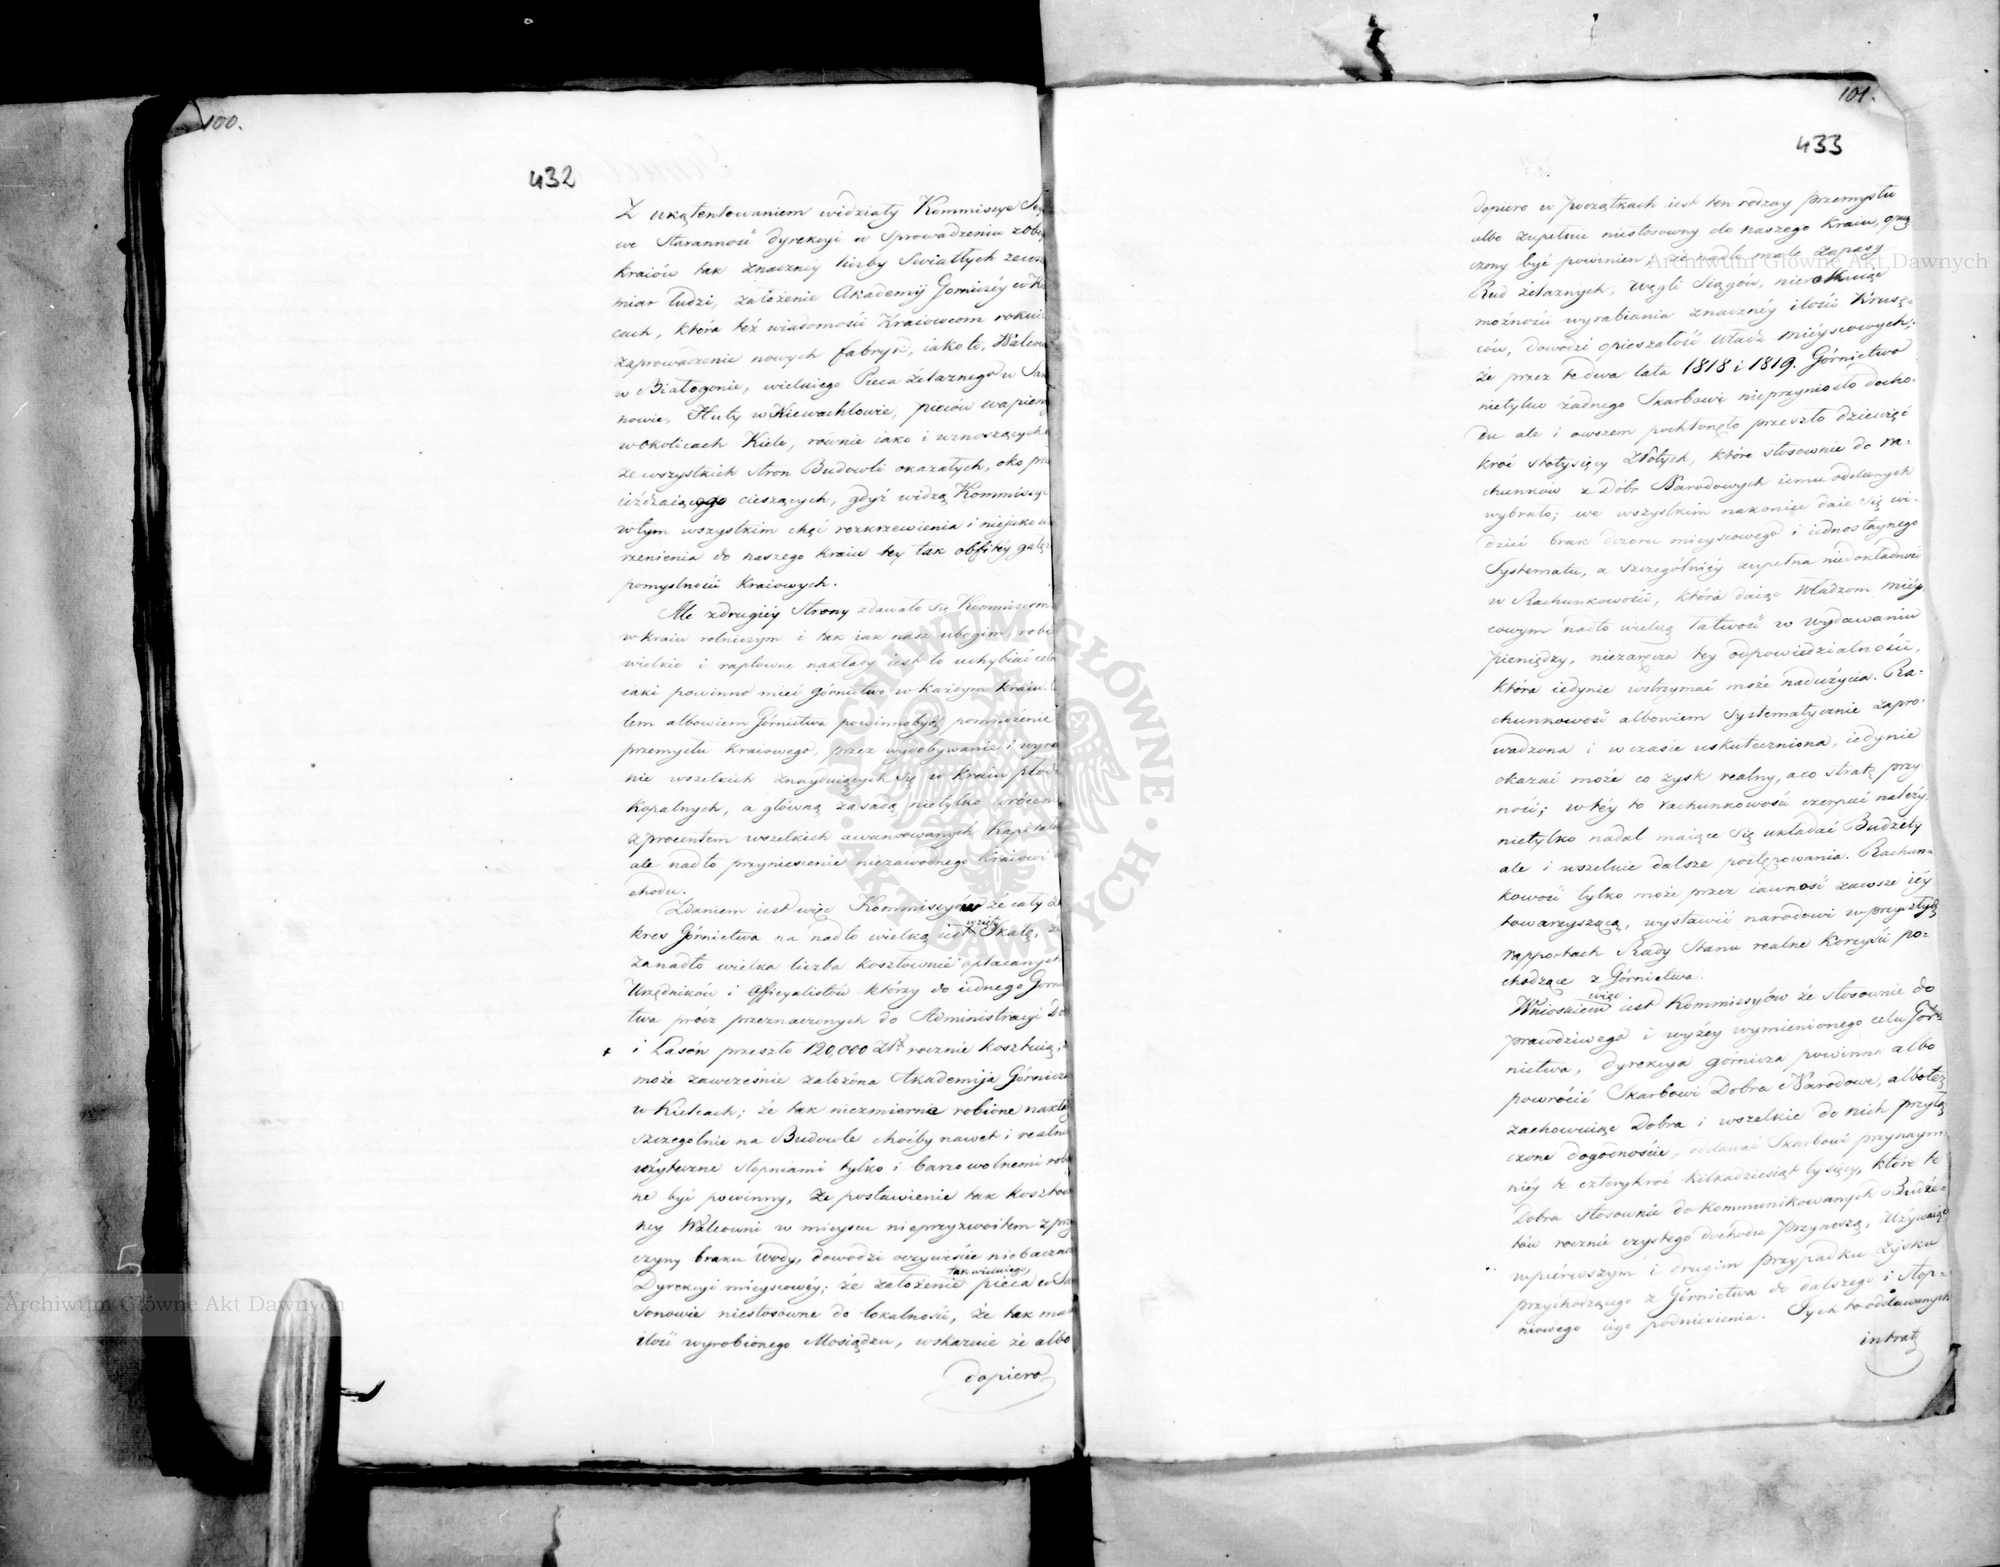 100.
432
Z ukątentowaniem widziały Kommissye Sey
we Staranność Dyrekcyi w Sprowadzeniu z obcy
kraiów tak znaczney liczby Swiatłych
miar ludzi, założenie Akademij Gorniczéy w K
cach, która też wiadomości Kraiowcom
zaprowadzenie nowych fabryk, iako to, Walcow
w Białogonie, wielkiego Pieca żelaznego w Sam
nowie, Huty w Niewachlowie, pieców wapien
w okolicach Kielc, równie iako i wznoszących
ze wszystkich stron Budowli okazałych, oko prze
ieżdzaiącego cieszących, gdyż widzą Kommissye
w tym wszystkim chęć rozkrzewienia i niejako w
rzenienia do naszego kraiu tey tak obfitéy gałęz
pomyślności kraiowych.
Ale z drugiéy Strony zdawało się Kommissiom
w kraiu rolniczym i tak iak nasz ubogim, robi
wielkie i raptowne nakłady iest to uchybiać celo
iaki powinno mieć górnictwo w każdym kraiu. C
lem albowiem Górnictwa powinno być pomnożenie
przemysłu kraiowego, przez wydobywanie i wyra
nie wszelkich znayduiących się w kraiu płod
kopalnych, a główną zasadą nietylko wrócenie
z procentem wszelkich awansowanych Kapitał
ale nadto przyniesienie niezawodnego kraiowi
chodu.
Zdaniem iest więc Kommissyów że cały Za
kres Górnictwa na nadto wielką iest wzięty Skalę, że
zanadto wielka liczba kosztownie opłacanych
Urzędników i Officyalistów którzy do iednego Górni
twa prócz przeznaczonych do Administracyi Dó
i Lasów przeszło 120,000 Złp rocznie kosztuią,
może zawcześnie założona Akademija Górnicza
w Kielcach; że tak niezmiernie robione nakłady
szczególnie na Budowle choćby nawet i realnie
użyteczne stopniami tylko i barzo wolnemi robio
ne być powinny, że postawienie tak koszto
ney Walcowni w mieyscu nieprzyzwoitem z przy
czyny braku wody, dowodzi oczywiście niebaczno
Dyrekcyi mieyscowéy; że założenie tak wielkiego pieca w Sam
sonowie niestosowne do lokalności, że tak mała
ilość wyrobionego Mosiądzu, wskazuie że albo
dopiero
101.
433
dopiero w początkach iest ten rodzay przemysłu
albo zupełnie niestosowny do naszego kraiu, opusz
czony być powinien, że nadto małe zapasy
Rud żelaznych, Węgli Siągów,
możności wyrabiania znacznéy ilości Krusz=
ców, dowodzi opieszałość władz mieyscowych;
że przez te dwa lata 1818 i 1819. Górnictwo
nietylko żadnego Skarbowi nieprzyniosło docho=
du ale i owszem pochłonęło przeszło dziewięć
kroć stotysięcy Złotych, które stosownie do ra=
chunków z Dóbr Narodowych iemu oddanych
wybrało; we wszystkim nakoniec daie się wi=
dzieć brak dozoru mieyscowego i iednostaynego
Systematu, a szczególniéy zupełna niedokładność
w Rachunkowości, która daiąc Władzom miéy
scowym nadto wielką łatwość w wydawaniu
pieniędzy, niezaręcza tey odpowiedzialności,
która iedynie wstrzymać może nadużycia. Ra=
chunkowość albowiem systematycznie zapro=
wadzona i w czasie uskuteczniona, iedynie
okazać może co zysk realny, a co stratę przy
nosi; w téy to rachunkowości czerpać należy
nietylko nadal maiące się układać Budżety
ale i wszelkie dalsze postępowania. Rachun=
kowość tylko może przez iawność zawsze iéy
towarzyszącą, wystawić narodowi w przyszłych
rapportach Rady Stanu realne korzyści po=
chodzące z Górnictwa.
Wnioskiem więc iest Kommissyów że stosownie do
prawdziwego i wyżéy wymienionego celu Gór=
nictwa, Dyrekcya górnicza powinna albo
powrócić Skarbowi Dobra Narodowe, albo też
zachowuiąc Dobra i wszelkie do nich przyłą
czone dogodności, oddawać Skarbowi przynaym
niéy te czterykroć kilkadziesiąt tysięcy, które te
Dobra stosownie do kommunikowanych Budże=
tów rocznie czystego dochodu przynoszą, używaiąc
w pierwszym i drugim przypadku Zysku
przychodzącego z Górnictwa do dalszego i stop=
niowego iego podniesienia. Tych to oddawanych
intrat